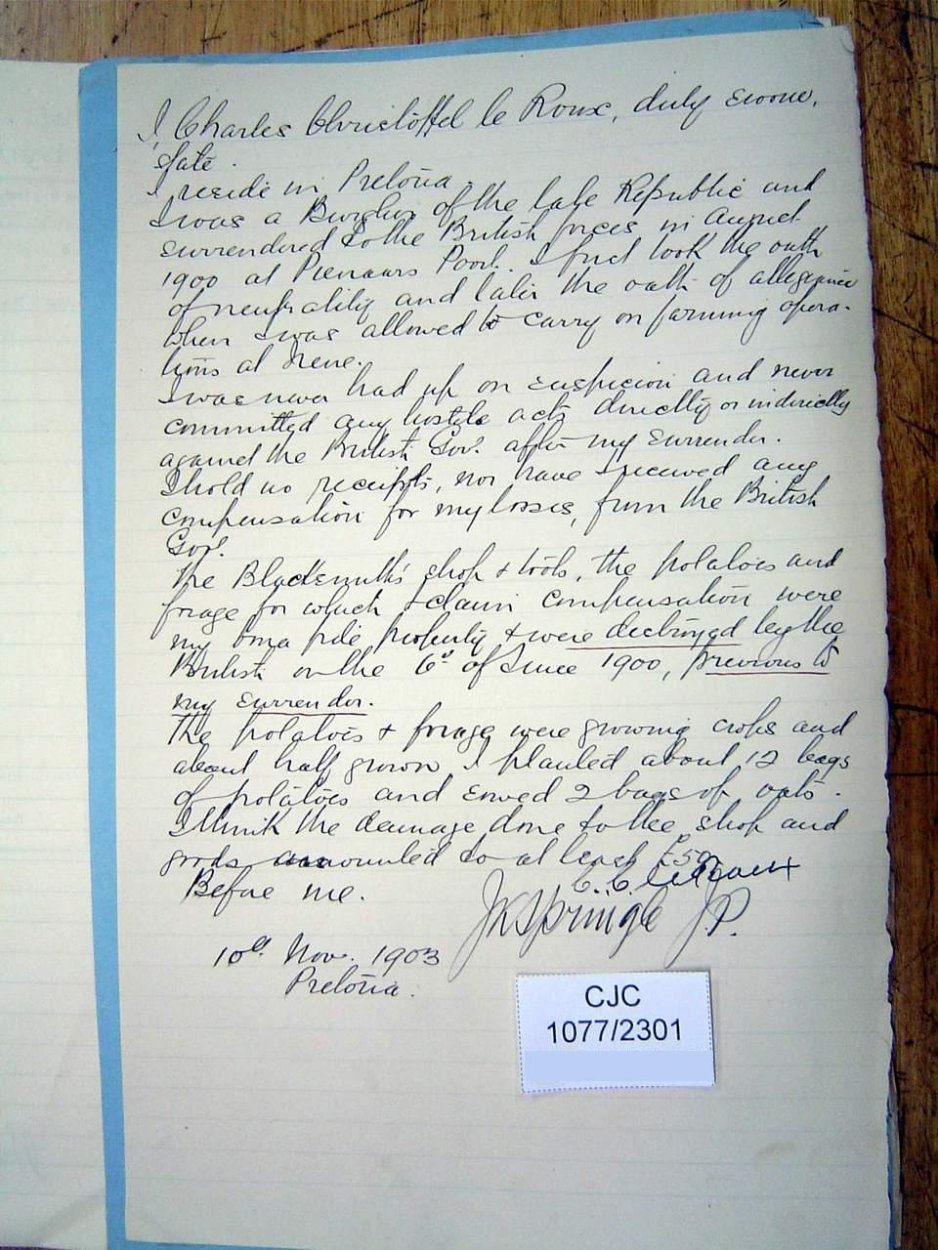 I, Charles Christoffel le Roux, duly sworn,
state.
I reside in Pretoria.
I was a Burgher of the late Republic and
surrendered to the British forces in August
1900 at Pienaars Poort. I first took the oath
of neutrality and later the oath of allegiance
when I was allowed to carry on farming opera-
tions at Irene.
I was never had up on suspicion and never
committed any hostile acts directly or indirectly
against the British Gov. after my surrender.
I hold no receipts, nor have I received any
compensation for my losses, from the British
Govt.
The Blacksmith's shop & tools, the potatoes and
forage for which I claim compensation were
my bona fide property & were destroyed by the
British on the 6th of June 1900, previous to
my surrender.
The potatoes & forage were growing crops and
about half grown I planted about 12 bags
of potatoes and sowed 2 bags of oats.
I think the damage done to the shop and
goods amounted to at least £50
C. C. le Roux
Before me.
Springle J.P.
10th Nov. 1903
Pretoria.
CJC
1077/2301